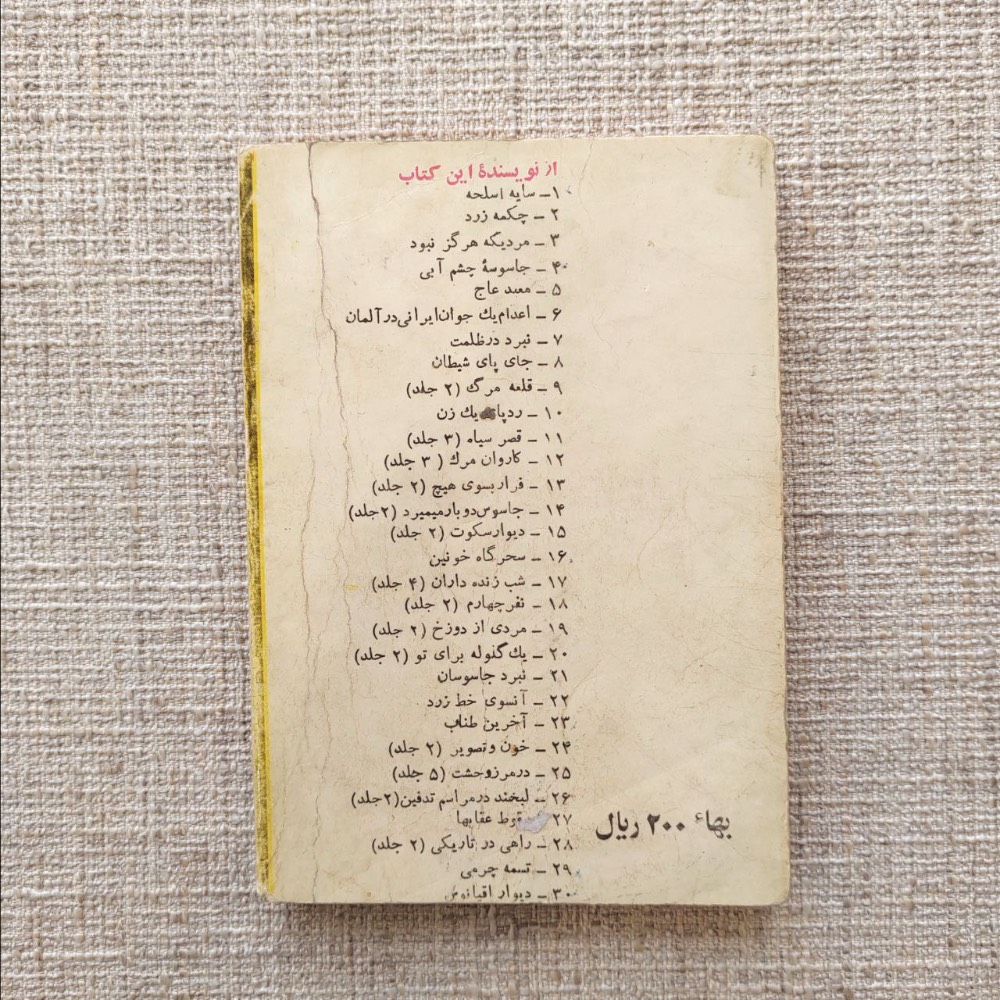 از نویسندهٔ این کتاب
۱ــ سایه اسلحه
۲ ــ چکمه زرد
۳ ــ مردیکه هرگز نبود
۴ ــ جاسوسهٔ چشم آبی
۵ ــ معبد عاج
۶ ــ اعدام یك جوان ایرانی در آلمان
۷ ــ نبرد در ظلمت
۸ ــ جای پای شیطان
۹ ــ قلعه مرگ (۲ جلد)
۱۰ ــ ردپای یك زن
۱۱ ــ قصر سیاه (۳ جلد)
۱۲ ــ کاروان مرگ ( ۳ جلد)
۱۳ ــ فرار بسوی هیچ (۲ جلد)
۱۴ ــ جاسوس دوبار میمیرد (۲جلد)
۱۵ ــ دیوار سکوت (۲ جلد)
۱۶ ــ سحرگاه خونین
۱۷ ــ شب زنده داران (۴ جلد)
۱۸ ــ نفر چهارم (۲ جلد)
۱۹ ــ مردی از دوزخ (۲ جلد)
۲۰ ــ یك گلوله برای تو (۲ جلد)
۲۱ ــ نبرد جاسوسان
۲۲ ــ آنسوی خط زرد
۲۳ ــ آخرین طناب
۲۴ ــ خون و تصویر (۲ جلد)
۲۵ ــ در مرز وحشت (۵ جلد)
۲۶ ــ لبخند در مراسم تدفین (۲جلد)
۲۷ ــ قوط عقابها
۲۸ ــ راهی در تاریکی (۲ جلد)
۲۹ ــ تسمه چرمی
۳۰ ــ دیوار اقیانوس
بهاء ۲۰۰ ریال